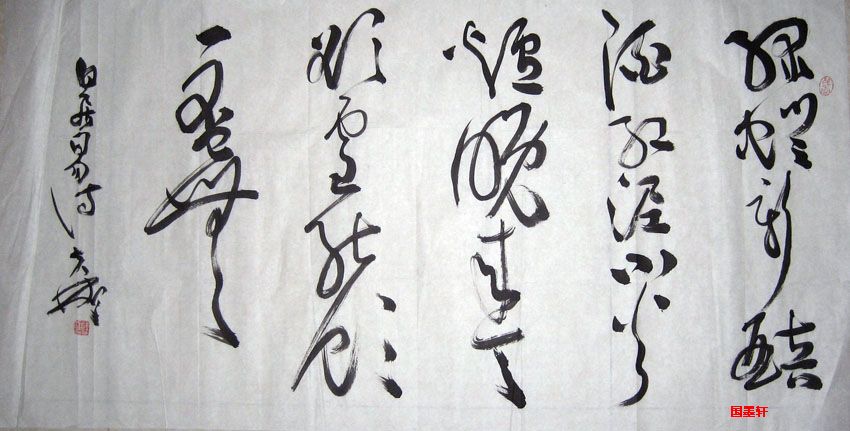 綠蟻新醅
酒紅泥小火
爐晚來天
欲雪能飲
一盃無
白居易詩
国墨轩